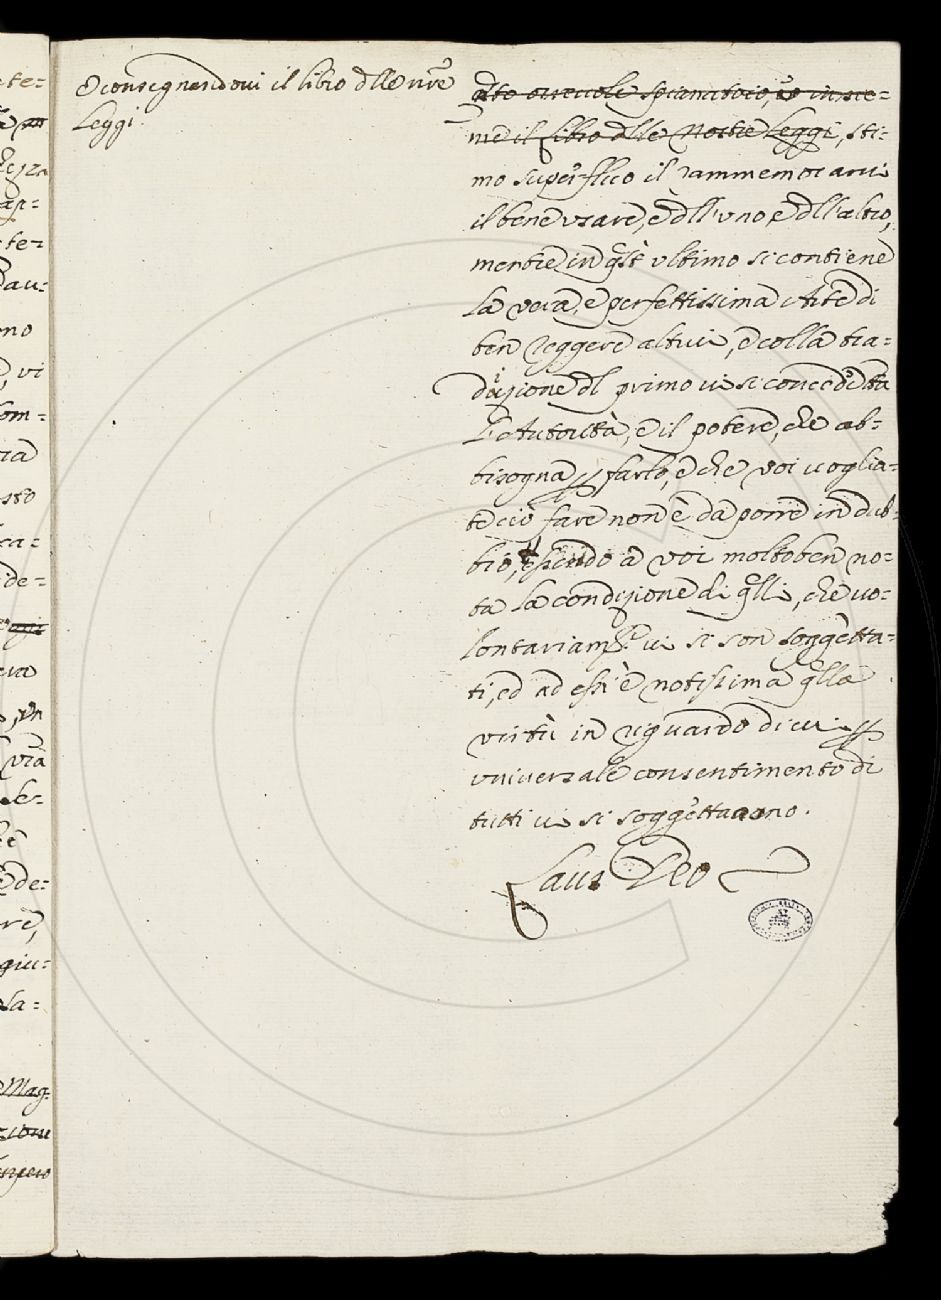 e consegnandovi il libro dlle nre
Leggi.
dto orrevole spianatoio, e insie=
me il Libro dlle Nostre Leggi, sti=
mo superfluo il rammemorarvi
il bene usare, e dll'uno, e dll'altro,
mentre in qsto ultimo si contiene
la vera, e perfettissima Arte di
ben reggere altrui, e colla tra=
dizione dl primo vi si concede tta
L'Autorità, e il potere, che ab=
bisogna p farlo, e che voi voglia=
te ciò fare non è da porre in dub=
bio, essendo a voi molto ben no=
ta la condizione di qlli, che vo=
lontariamte vi si son soggetta=
ti, ed ad essi è notissima qlla
virtù in riguardo di cui p
universale consentimento di
tutti vi si soggettarono.
Laus Deo